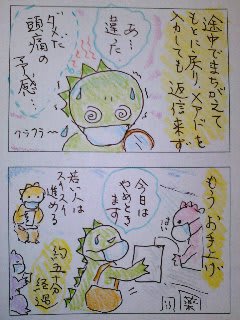 途中でまちがえて
もとに戻り、メアドを
入力しても返信来ず
あ…
違た
ダメだ
頭痛の
予感…
クラクラ〜
もうお手上げ
今日は
やめとき
ます
若い人は
スイスイ
進める
約五十分
経過
薬